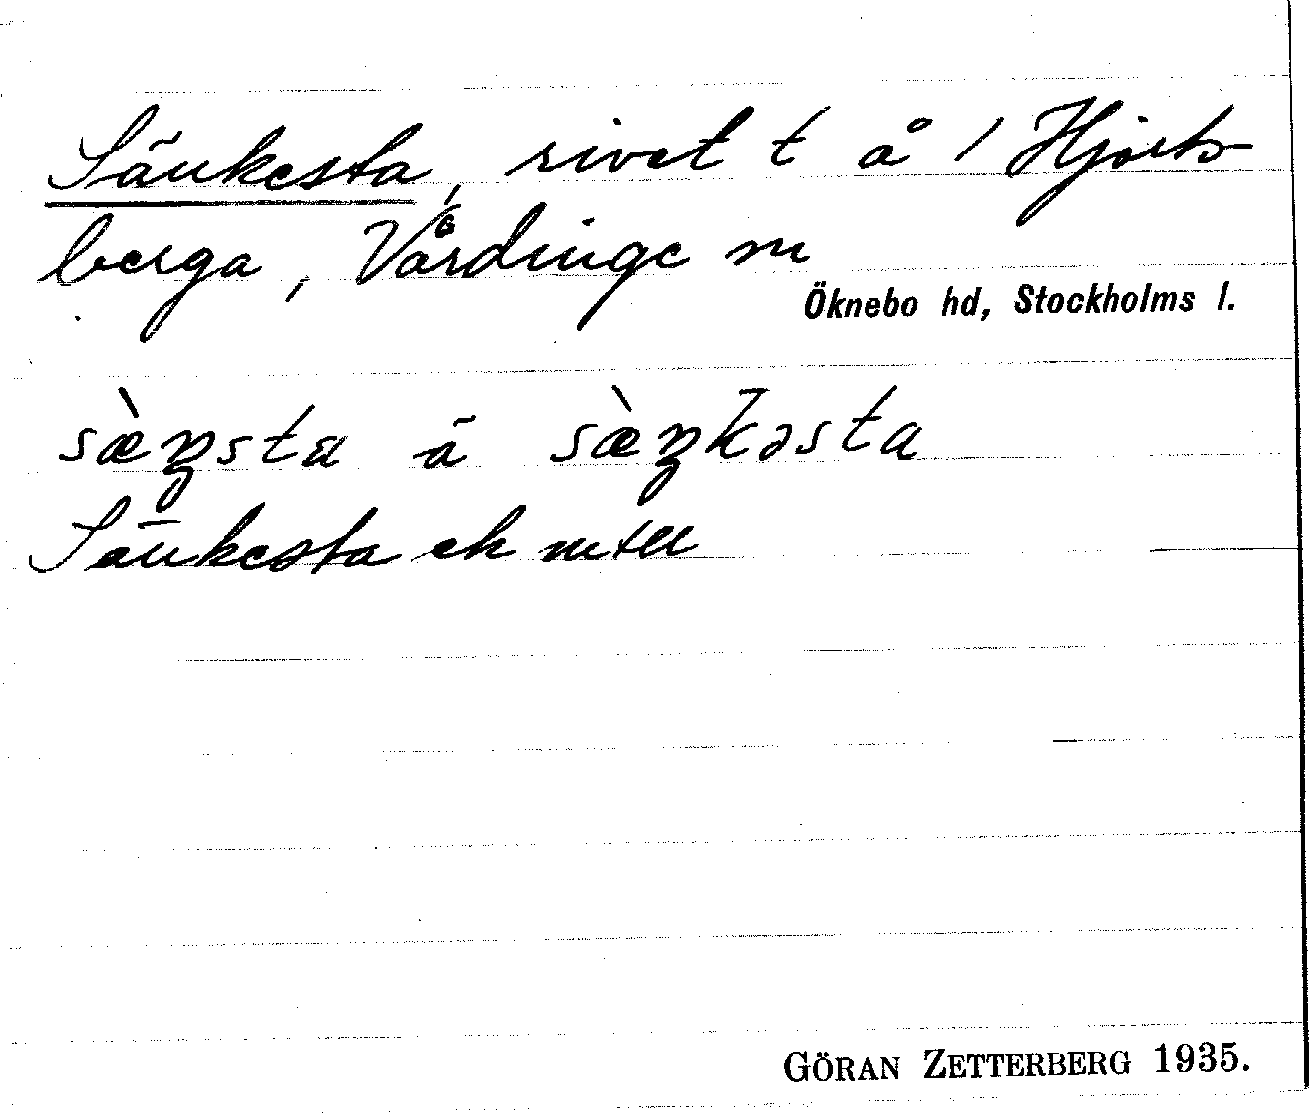 Sänkesta, rivet t å 1 Hjorts-
berga, Vårdinge sn
Öknebo hd, Stockholms l.
sæ̀ŋsta ä sæ̀ŋkəsta
Sänkesta ek
GÖRAN ZETTERBERG 1935.